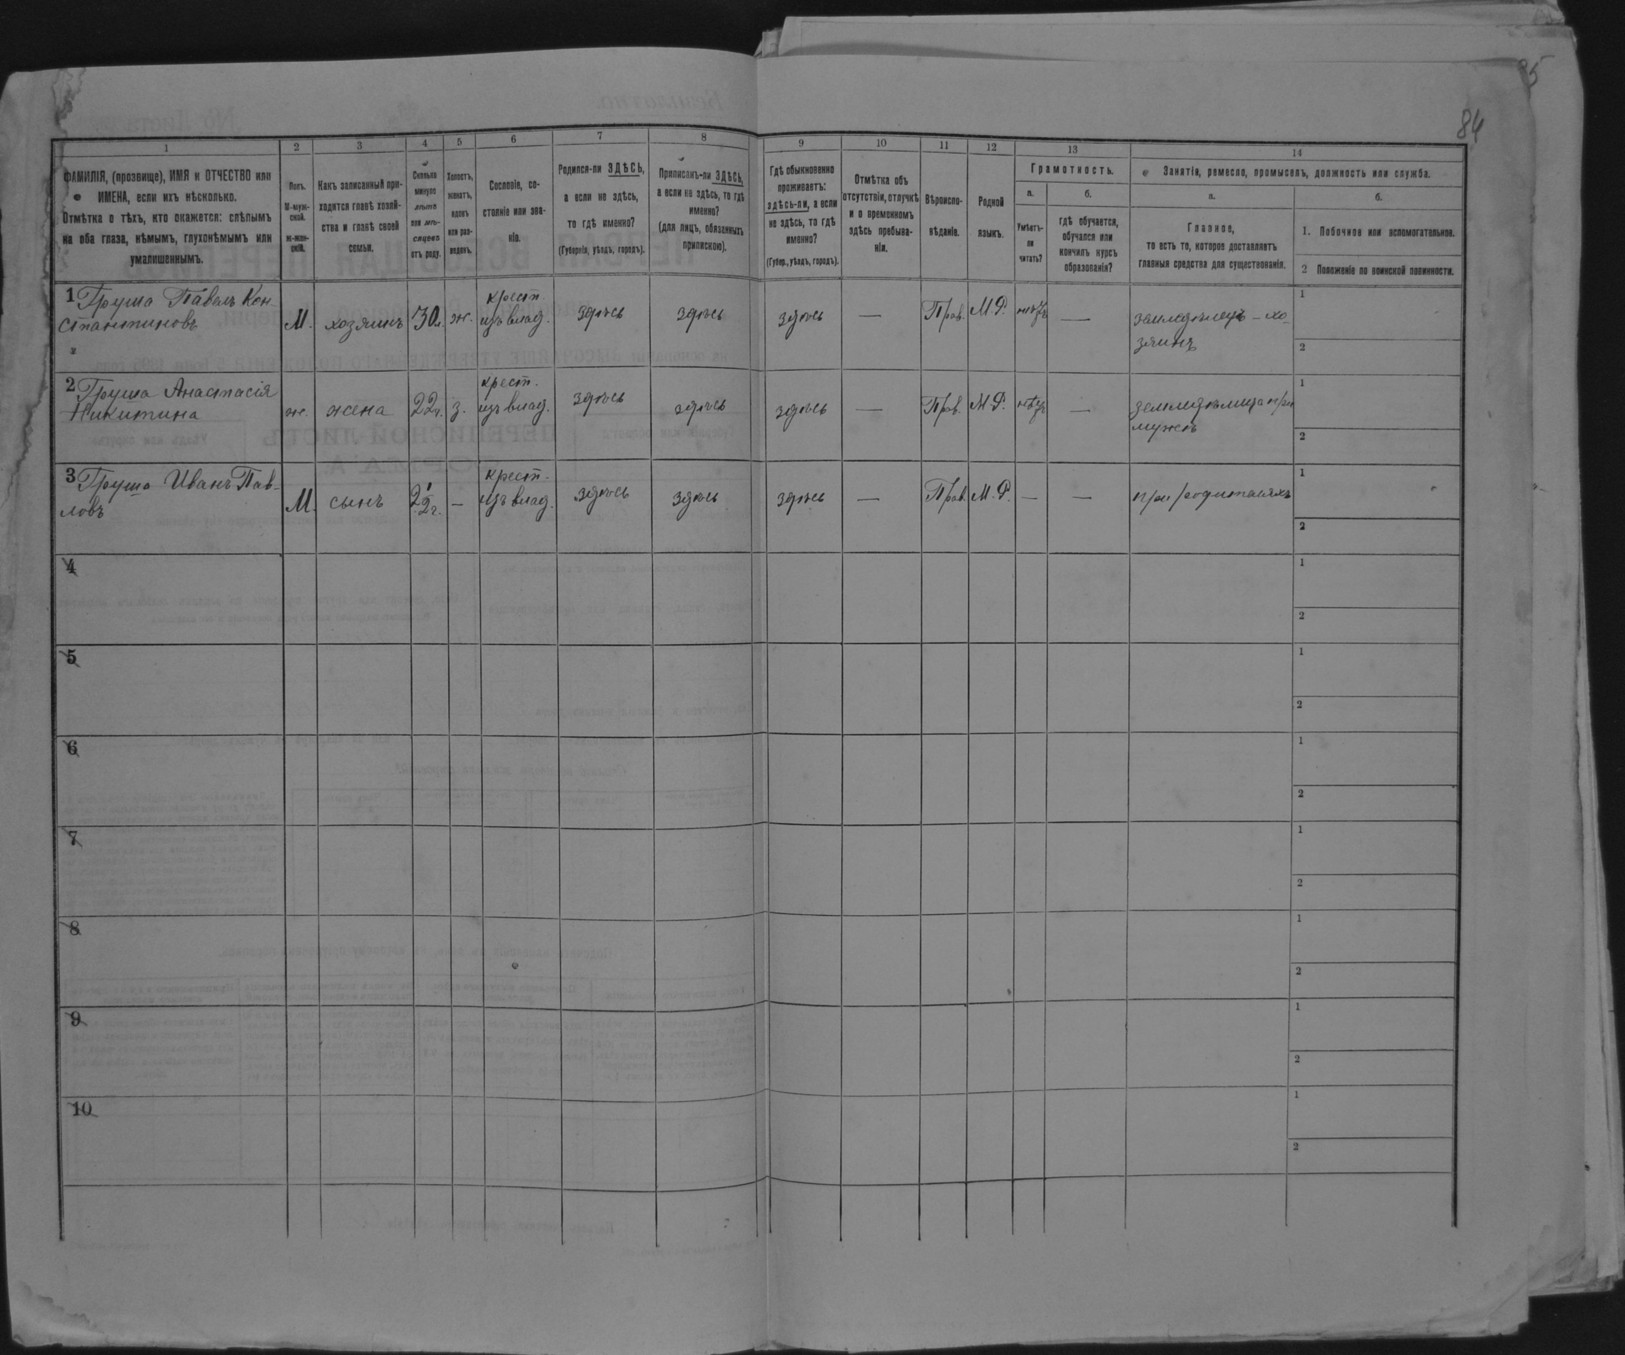 84
1 2 3 4 5 6 7 8 9 10 11 12 13 14
ФАМИЛІЯ, (прозвище), ИМЯ и ОТЧЕСТВО или
ИМЕНА, если ихъ нѣсколько.
Отмѣтка о тѣхъ, кто окажется: слѣпымъ
на оба глаза, нѣмымъ, глухонѣмымъ или
умалишеннымъ.
Полъ.
М-муж-
ской.
ж-жен-
скій.
Какъ записанный при-
ходится главѣ хозяй-
ства и главѣ своей
семьи.
Сколько
минуло
лѣтъ
или мѣ-
сяцевъ
отъ роду.
Холостъ,
женатъ,
вдовъ
или раз-
веденъ.
Сословіе, со-
стояніе или зва-
ніе.
Родился-ли ЗДѢСЬ,
а если не здѣсь,
то гдѣ именно?
(Губернія, уѣздъ, городъ).
Приписанъ-ли ЗДѢСЬ,
а если не здѣсь, то гдѣ
именно?
(для лицъ, обязанныхъ
припискою).
Гдѣ обыкновенно
проживаетъ:
здѣсь-ли, а если
не здѣсь, то гдѣ
именно?
(Губер., уѣздъ, городъ).
Отмѣтка объ
отсутствіи, отлучкѣ
и о временномъ
здѣсь пребыва-
ніи.
Вѣроиспо-
вѣданіе.
Родной
языкъ.
Грамотность.
а.
Умѣетъ-
ли
читать?
б.
гдѣ обучается,
обучался или
кончилъ курсъ
образованія?
Занятія, ремесло, промыселъ, должность или служба.
а.
Главное,
то есть то, которое доставляетъ
главныя средства для существованія.
б.
1. Побочное или вспомогательное.
2 Положеніе по воинской повинности.
1 Груша Павелъ Кон
стантиновъ
М.
хозяинъ
30л.
ж.
крест.
изъ влад.
здѣсь
здѣсь
здѣсь
—
Прав.
М.Р.
нѣтъ
—
земледѣлецъ - хо-
зяинъ
1
2
2 Груша Анастасія
Никитина
ж.
жена
22г.
з.
крест.
изъ влад.
здѣсь
здѣсь
здѣсь
—
Прав.
М.Р.
нѣтъ
—
земледѣлица при
мужѣ
1
2
3 Груша Иванъ Пав-
ловъ
М.
сынъ
2½ г.
—
крест.
изъ влад.
здѣсь
здѣсь
здѣсь
—
Прав.
М.Р.
—
—
при родителяхъ
1
2
4
1
2
5
1
2
6
1
2
7
1
2
8
1
2
9
1
2
10
1
2